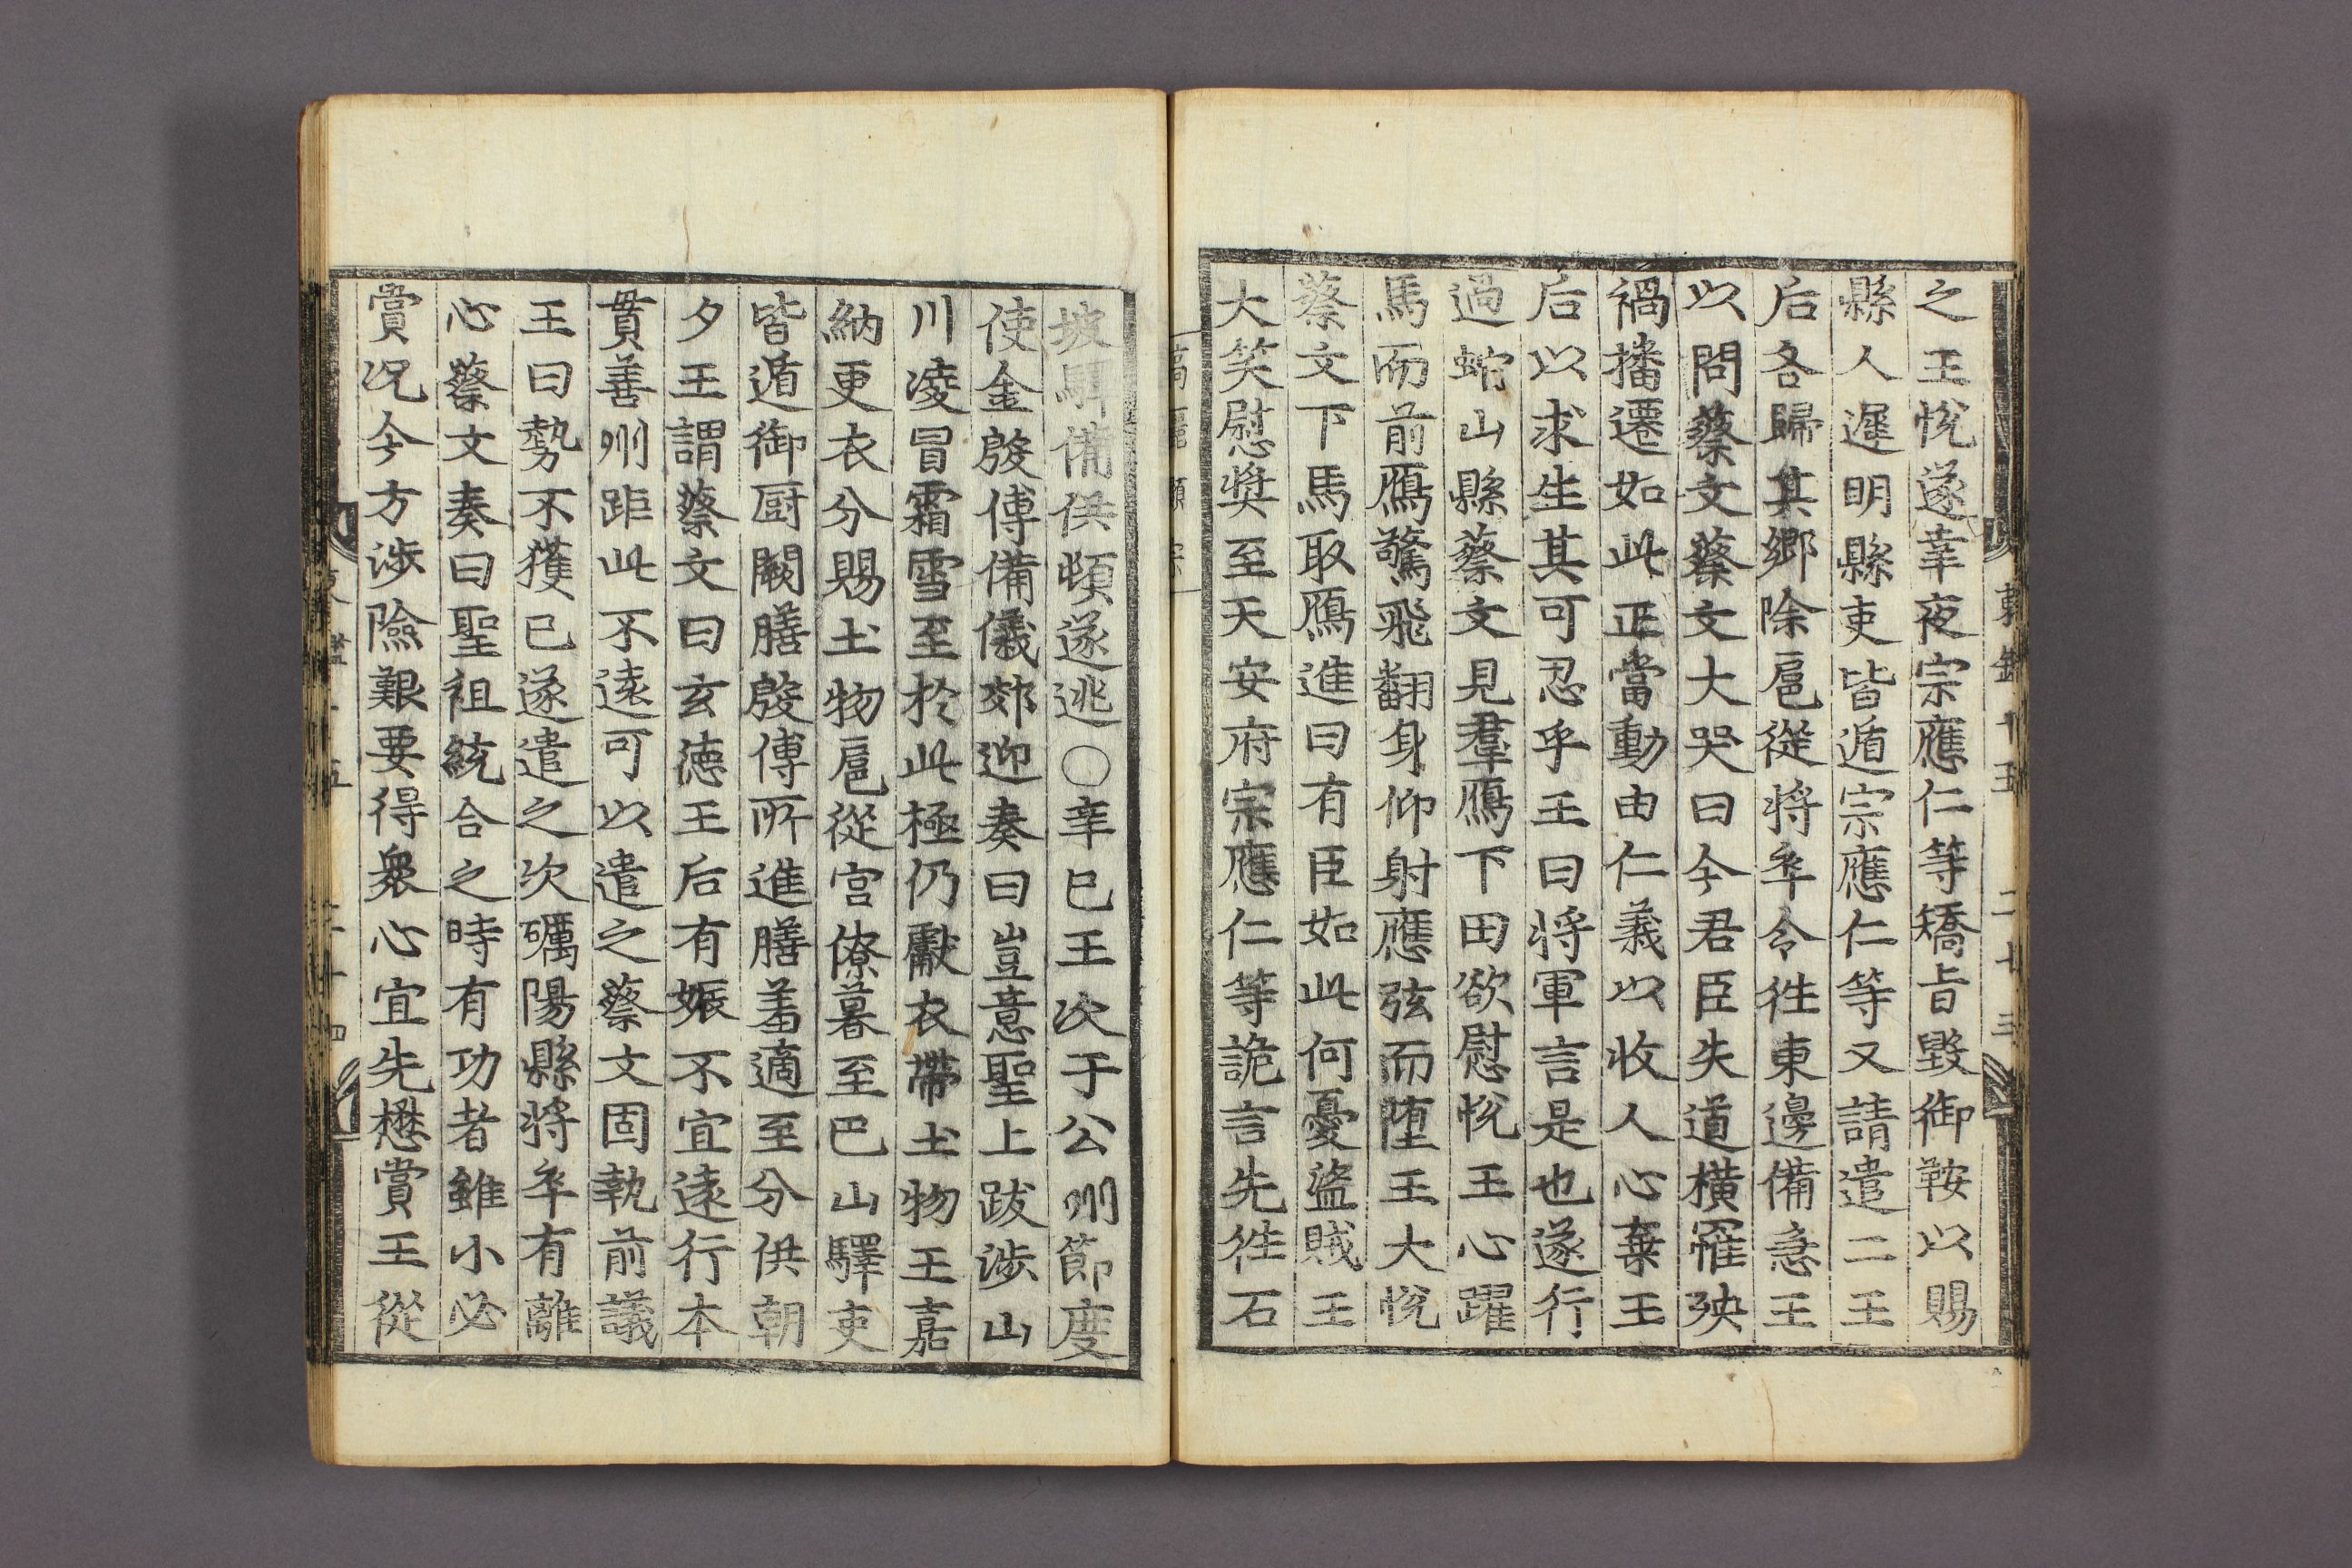 之王悅遂幸夜宗應仁等矯旨毀御鞍以賜
縣人遲明縣吏皆遁宗應仁等又請遣二王
后各歸其鄉除扈從將卒令徃東邊備急王
以問蔡文蔡文大哭曰今君臣失道橫罹殃
禍播遷如此正當動由仁義以收人心棄王
后以求生其可忍乎王曰將軍言是也遂行
過蛇山縣蔡文見羣鴈下田欲慰悅王心躍
馬而前鴈驚飛翻身仰射應弦而墮王大悅
蔡文下馬取鴈進曰有臣如此何憂盜賊王
大笑慰奬至天安府宗應仁等詭言先徃石
坡驛備供頓遂逃○辛巳王次于公州節度
使金殷傅備儀郊迎奏曰豈意聖上跋涉山
川凌冒霜雪至於此極仍獻衣帶土物王嘉
納更衣分賜土物扈從宮僚暮至巴山驛吏
皆遁御厨闕膳殷傅所進膳羞適至分供朝
夕王謂蔡文曰玄德王后有娠不宜遠行本
貫善州距此不遠可以遣之蔡文固執前議
王曰勢不獲已遂遣之次礪陽縣將卒有離
心蔡文奏曰聖祖統合之時有功者雖小必
賞况今方涉險艱要得衆心宜先懋賞王從